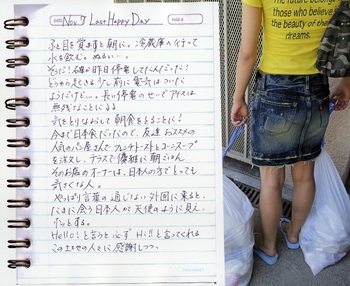 DATE Nov. 7 Last Happy Day PAGE
ふと目を覚ますと朝に。冷蔵庫へ行って
水を飲む。ぬるい…。
そうだ!確か昨日停電してたんだった!
どうやらたった今少し前に電気はついた
ようだけど…。長い停電のせいでアイスは
無残なことになる
気をとりなおして朝食をとることに!
今まで日本食だったので、友達おススメの
人気のパン屋さんでフレンチトーストとコーンスープ
を注文し、テラスで優雅に朝ごはん
そのお店のオーナーは、日本人の方でとっても
気さくな人。
やっぱり言葉の通じない外国に来ると、
たまに会う日本人が天使のように見え、
ホッとする。
Hello!と言うと必ずHi!!と言ってくれる
この土地の人々に感謝しつつ、
The future belongs
those who believe
the beauty of the
dreams.